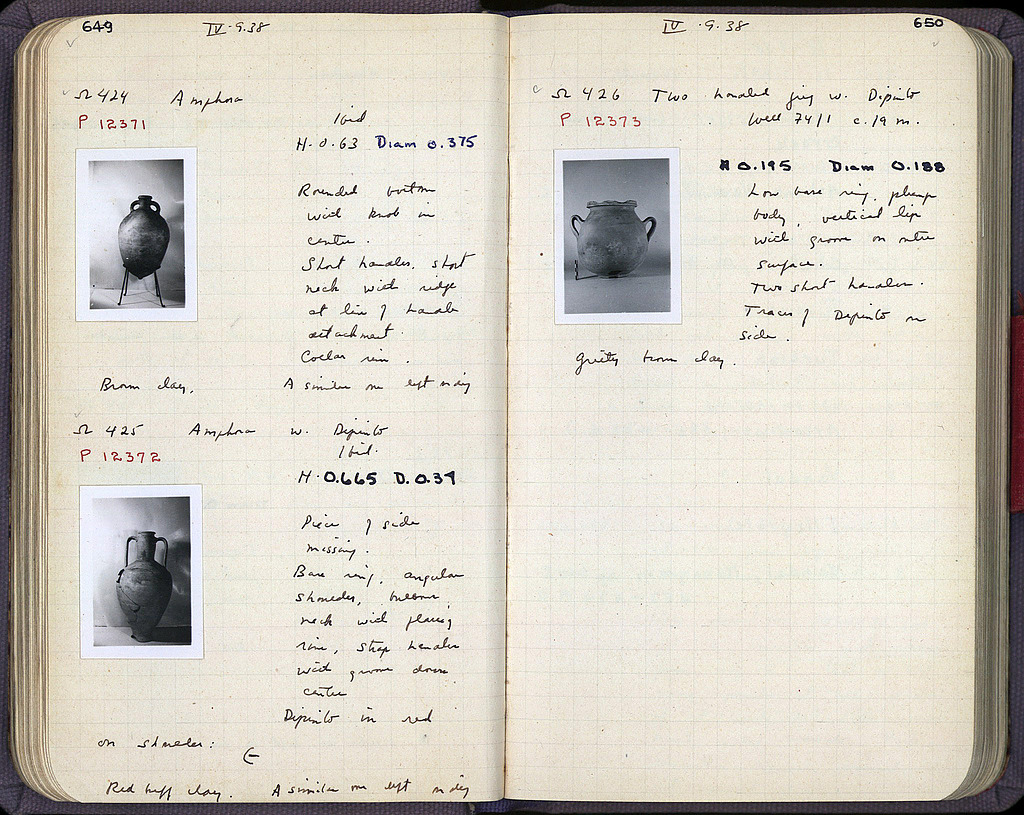 649
IV·9.38
Ω 424 Amphora
P 12371
Ibid
H. 0.63 Diam 0.375
Rounded bottom
with knob in
centre.
Short handles, short
neck with ridge
at line of handle
attachment.
Collar rim.
Brown clay.
A similar one left in dig
Ω 425 Amphora w. Dipinto
P 12372
Ibid.
H. 0.665 D. 0.34
Piece of side
missing.
Base ring, angular
shoulder,
neck with flaring
rim, strap handles
with groove down
centre
Dipinto in red
on shoulder:
Red buff clay. A similar one left in dig
650
IV·9.38
Ω 426 Two handled jug w. Dipinto
P 12373
Well 74/1 c. 19 m.
H 0.195 Diam 0.188
Low base ring, plump
body, vertical lip
with groove on outer
surface.
Two short handles.
Traces of Dipinto on
side.
Gritty brown clay.